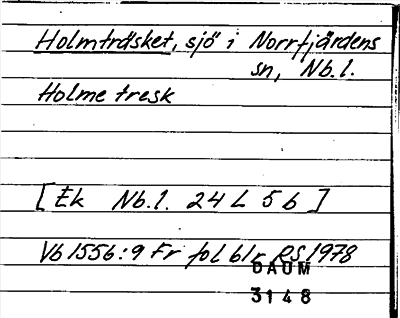 Holmträsket, sjö i Norrfjärdens
sn, Nb.l.
Holme tresk
[Ek Nb.l. 24 L 5 b]
Vb 1556:9 Fr fol bl. RS 1978
DAUM
3148